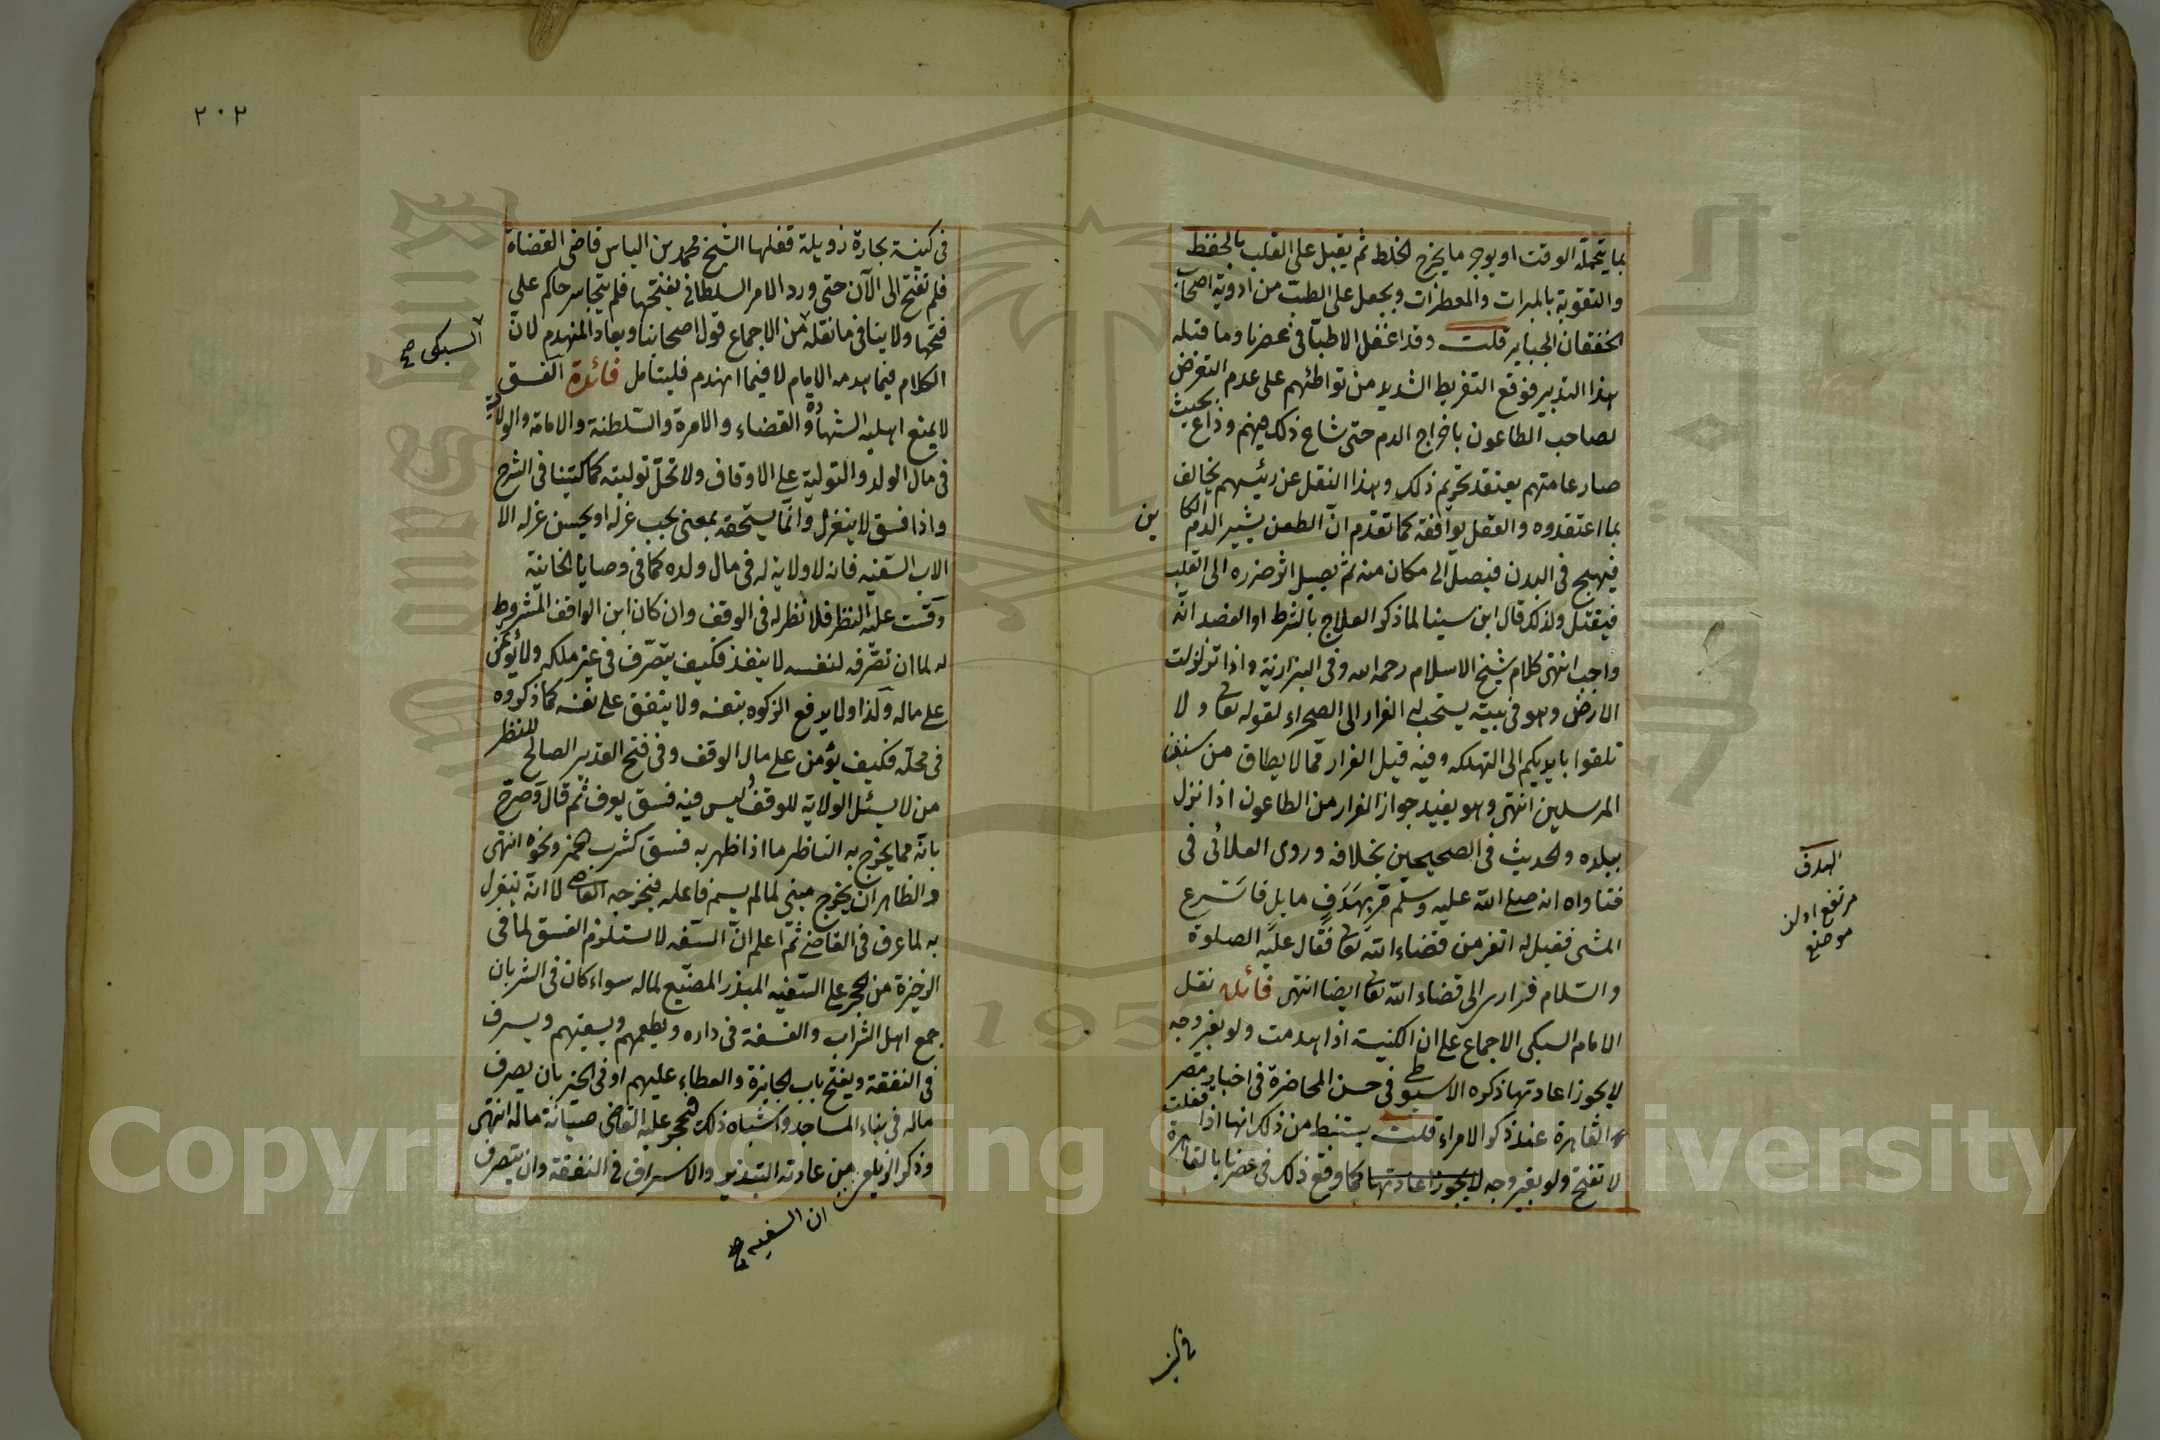 بما يتحمله الوقت او يوجر ما يخرج الخلط ثم يقبل على القلب بالحفظ
والتقوية بالمبردات والمعطرات ويجعل على الطب من ادوية اصحاب
الخفقان الجيار قلت وقد اغفل الاطبا في عصرنا وما قبله
هذا التدبير فوقع التفريط الشديد من تواطئهم على عدم التعرض
لصاحب الطاعون باخراج الدم حتى شاع ذلك فيهم وذاع بحيث
صار عامتهم يعتقد تحريم ذلك وهذا النقل عن رئيسهم يخالف
بما اعتقدوه والعقل يوافقه كما تقدم ان الطعن يثير الدم الكا
ين
فيهيج في البدن فيصل الى مكان منه ثم يصل اثر ضرره الى القلب
فيقتل ولذلك قال ابن سينا لما ذكر العلاج بالشرط او الفصد انه
واجب انتهى كلام شيخ الاسلام رحمه الله وفي البزازية واذا تزلزلت
الارض وهو في بيته يستحب له الفرار الى الصحراء لقوله تعا ولا
تلقوا بايديكم الى التهلكه وفيه قيل الفرار مما لا يطاق من سنن
المرسلين انتهى وهو يفيد جواز الفرار من الطاعون اذا نزل
ببلده والحديث في الصحيحين بخلافه وروى العلائى في
فتاواه انه صلى الله عليه وسلم مر بهدف مايل فاسرع
المشى فقيل له اتفر من قضاء الله تعا فقال عليه الصلوة
والسلام فرارى الى قضاء الله تعا ايضا انتهى فائدة نقل
الامام السبكى الاجماع على ان الكنيسة اذا هدمت ولو بغير وجه
لا يجوز اعادتها ذكره الاسيوطى في حسن المحاضرة في اخبار مصر
والقاهرة عند ذكر الامراء قلت يستنبط من ذلك انها اذا قفلت
لا تفتح ولو بغير وجه لا يجوز اعادتها كما وقع ذلك في عصرنا بالقاهرة
الهدف
مرتفع اولن
موضع
في كنيسة
٢٠٢
في كنيسة بحارة زويلة قفلها الشيخ محمد بن الياس قاضى القضاة
فلم تفتح الى الآن حتى ورد الامر السلطانى بفتحها فلم يتجاسر حاكم على
فتحها ولا ينافى ما نقله من الاجماع قول اصحابنا ويعاد المنهدم لان
السبكى صح
الكلام فيما هدمه الامام لا فيما انهدم فليتأمل فائدة الفسق
لا يمنع اهلية الشهادة والقضاء والامرة والسلطنة والامامة والولاية
في مال الولد والتولية على الاوقاف ولا تحل توليته كما كتبنا في الشرح
واذا فسق لا ينعزل وانما يستحقه بمعنى يجب عزله او يحسن عزله الا
الاب السفيه فانه لا ولاية له في مال ولده كما في وصايا الخانية
وقست عليه النظر فلا نظر له في الوقف وان كان ابن الواقف المشروط
له لما ان تصرفه لنفسه لا ينفذ فكيف يتصرف في غير ملكه ولا يؤتمن
على ماله ولذا ولا يدفع الزكوة بنفسه ولا ينفق على نفسه كما ذكروه
في محله فكيف يؤمن على مال الوقف وفي فتح القدير الصالح للنظر
من لا يسئل الولاية للوقف وليس فيه فسق يعرف ثم قال وصرح
بانه مما يخرج به الناظر ما اذا ظهر به فسق كشرب الخمر ونحوه انتهى
والظاهر ان يخرج مبنى لما لم يسم فاعله فيخرجه القاضى لا انه ينعزل
به لما عرف في القاضى ثم اعلم ان السفه لا يستلزم الفسق لما في
الذخيرة من الحجر على السفيه المبذر المضيع لماله سواء كان في الشر بان
جمع اهل الشراب والفسقة في داره ويطعمهم ويسقيهم ويسرف
في النفقة ويفتح باب الجايزة والعطاء عليهم او في الخير بان يصرف
ماله في بناء المساجد واشباه ذلك فيحجر عليه القاضى صيانة ماله انتهى
وذكر الزيلعى من عادته التبذير والاسراف في النفقة وان يتصرف
ان السفيه صح
King Saud University
1957
Copyright © King Saud University